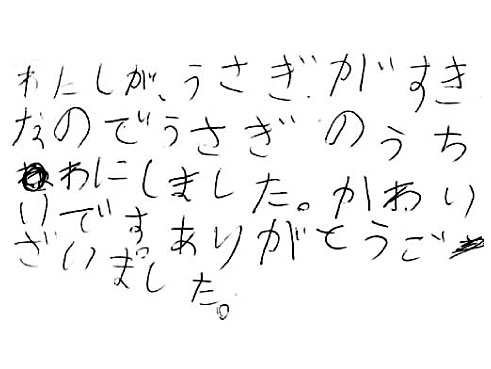 わたしが、うさぎ.がすき
なのでうさぎのうち
わにしました。かわい
いです。ありがとうご
ざいました。